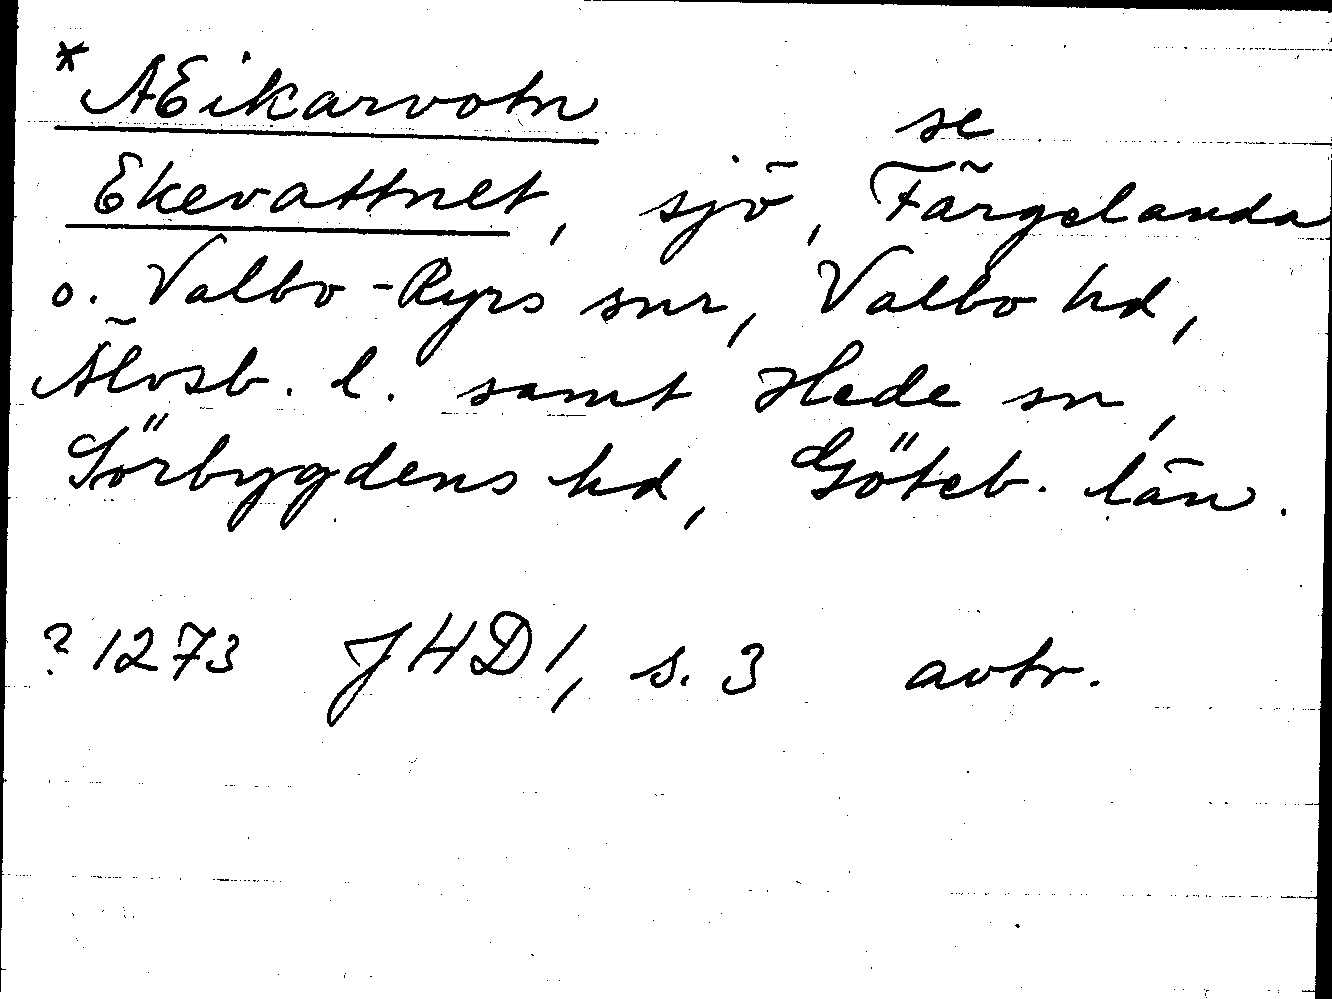 * AEikarvotn
se
Ekevattnet, sjö, Färgelanda
o. Valbo-Ryrs snr, Valbo hd,
Älvsb. l. samt Hede sn,
Sörbygdens hd, Göteb. län.
? 1273 JHD 1, s. 3 avtr.